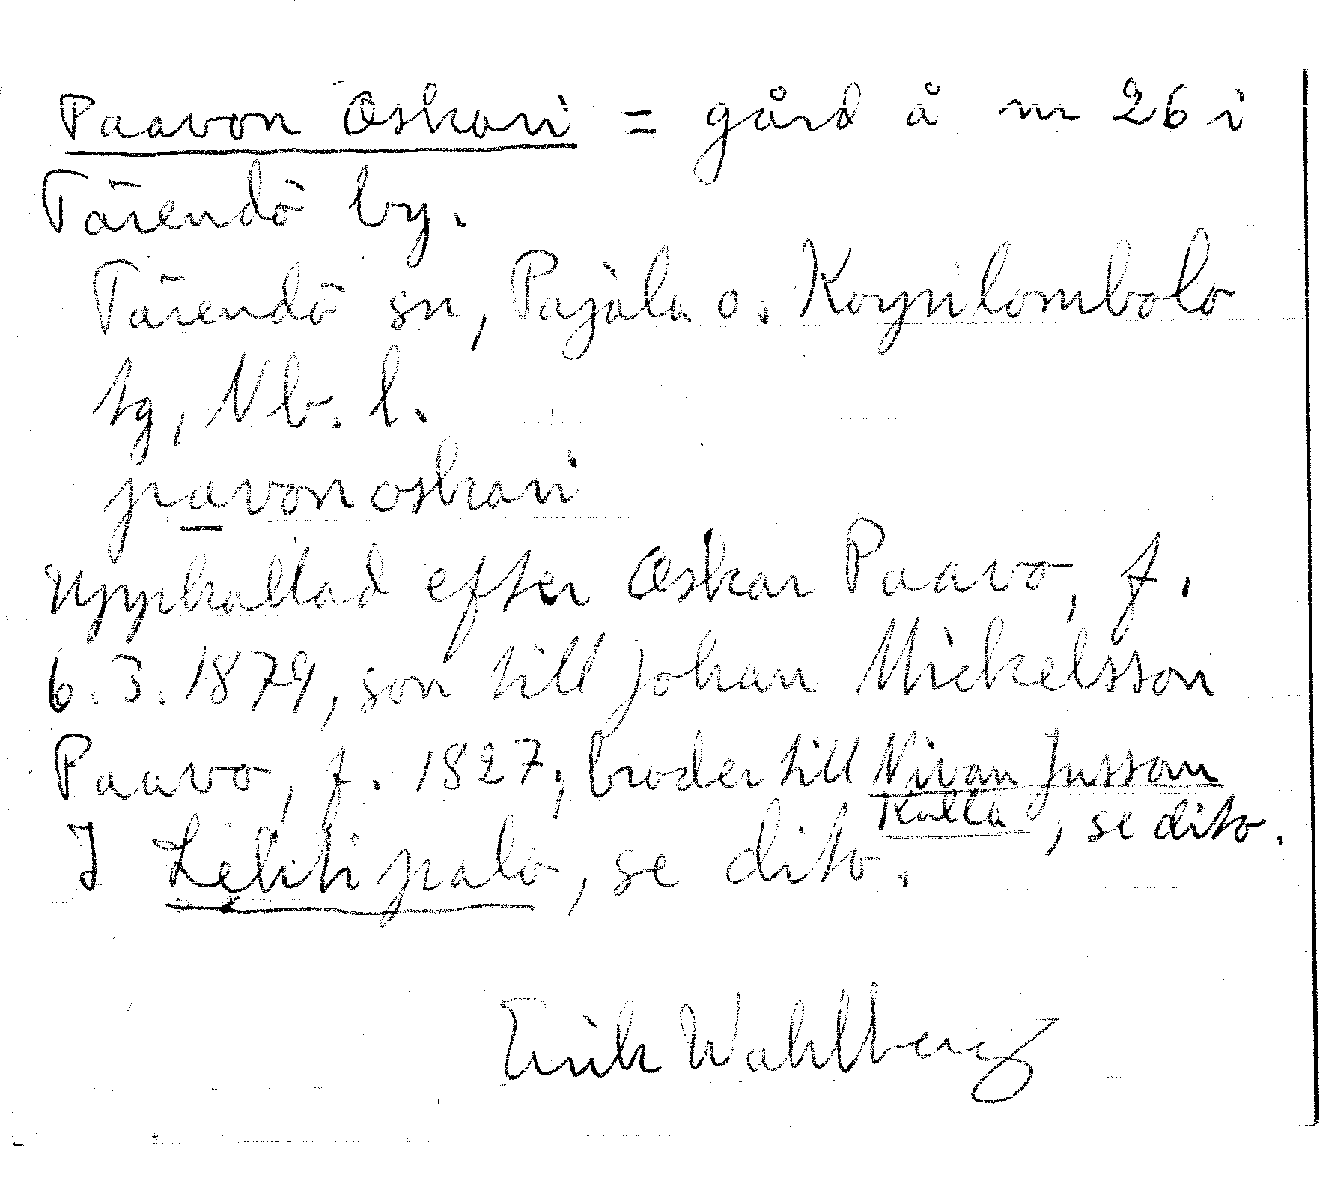 Paavon Oskari = gård å nr 26 i
Tärendö by.
Tärendö sn, Pajala o. Korpilombolo
tg, Nb. l.
pavon oskari
Uppkallad efter Oskar Paavo, f.
6.3.1879, son till Johan Mickelsson
Paavo, f. 1827, broder till Nivan Jussan
Kalla, se dito.
I Lehtipalo, se dito.
Erik Wahlberg